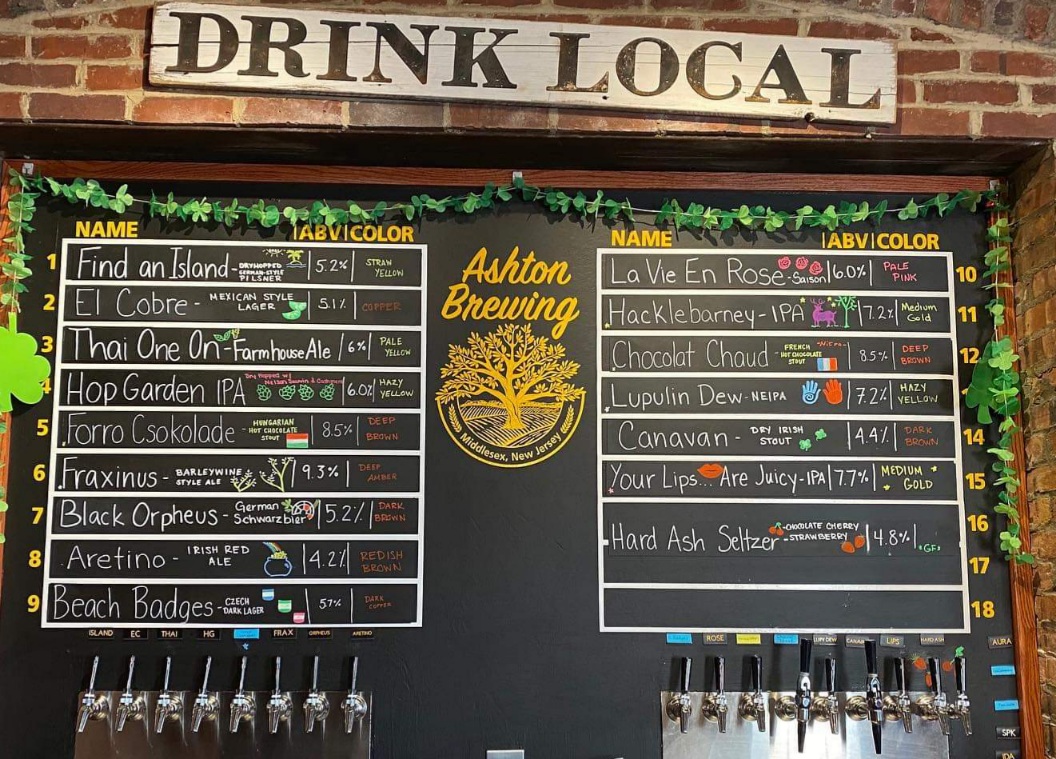 DRINK LOCAL
NAME ABV COLOR
1 Find an Island - DRY HOPPED GERMAN-STYLE PILSNER 5.2% STRAW YELLOW
2 El Cobre - MEXICAN STYLE LAGER 5.1% COPPER
3 Thai One On - Farmhouse Ale 6% PALE YELLOW
Hop Garden IPA Dry Hopped w/ Nelson Sauvin & 6.0% HAZY YELLOW
5 Forro Csokolade - HUNGARIAN HOT CHOCOLATE STOUT 8.5% DEEP BROWN
6 Fraxinus - BARLEYWINE STYLE ALE 9.3% DEEP AMBER
7 Black Orpheus - German Schwarzbier 5.2% DARK BROWN
8 Aretino - IRISH RED ALE 4.2% REDISH BROWN
9 Beach Badges - CZECH DARK LAGER 5.7% DARK COPPER
ISLAND EC THAI HG FRAX ORPHEUS ARETINO
Ashton
Brewing
Middlesex, New Jersey
NAME ABV COLOR
La Vie En Rose - Saison 6.0% PALE PINK 10
Hacklebarney - IPA 7.2% Medium Gold 11
Chocolat Chaud - FRENCH HOT CHOCOLATE STOUT 8.5% DEEP BROWN 12
Lupulin Dew - NEIPA 7.2% HAZY YELLOW
Canavan - DRY IRISH STOUT 4.4% DARK BROWN 14
Your Lips... Are Juicy - IPA 7.7% MEDIUM GOLD 15
Hard Ash Seltzer - CHOCOLATE CHERRY - STRAWBERRY 4.8% GF 16
17
18
ROSE LUPY DEW CANAVAN LIPS HARD ASH AURA
SPK
IPA